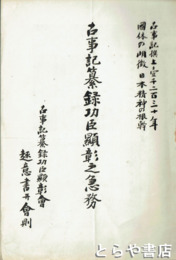 古事記撰上千二百三十年
國体の明徴日本精神の根幹
古事記纂録功臣顯彰之急務
古事記纂録功臣顯彰會
趣意書并會則
とらや書店